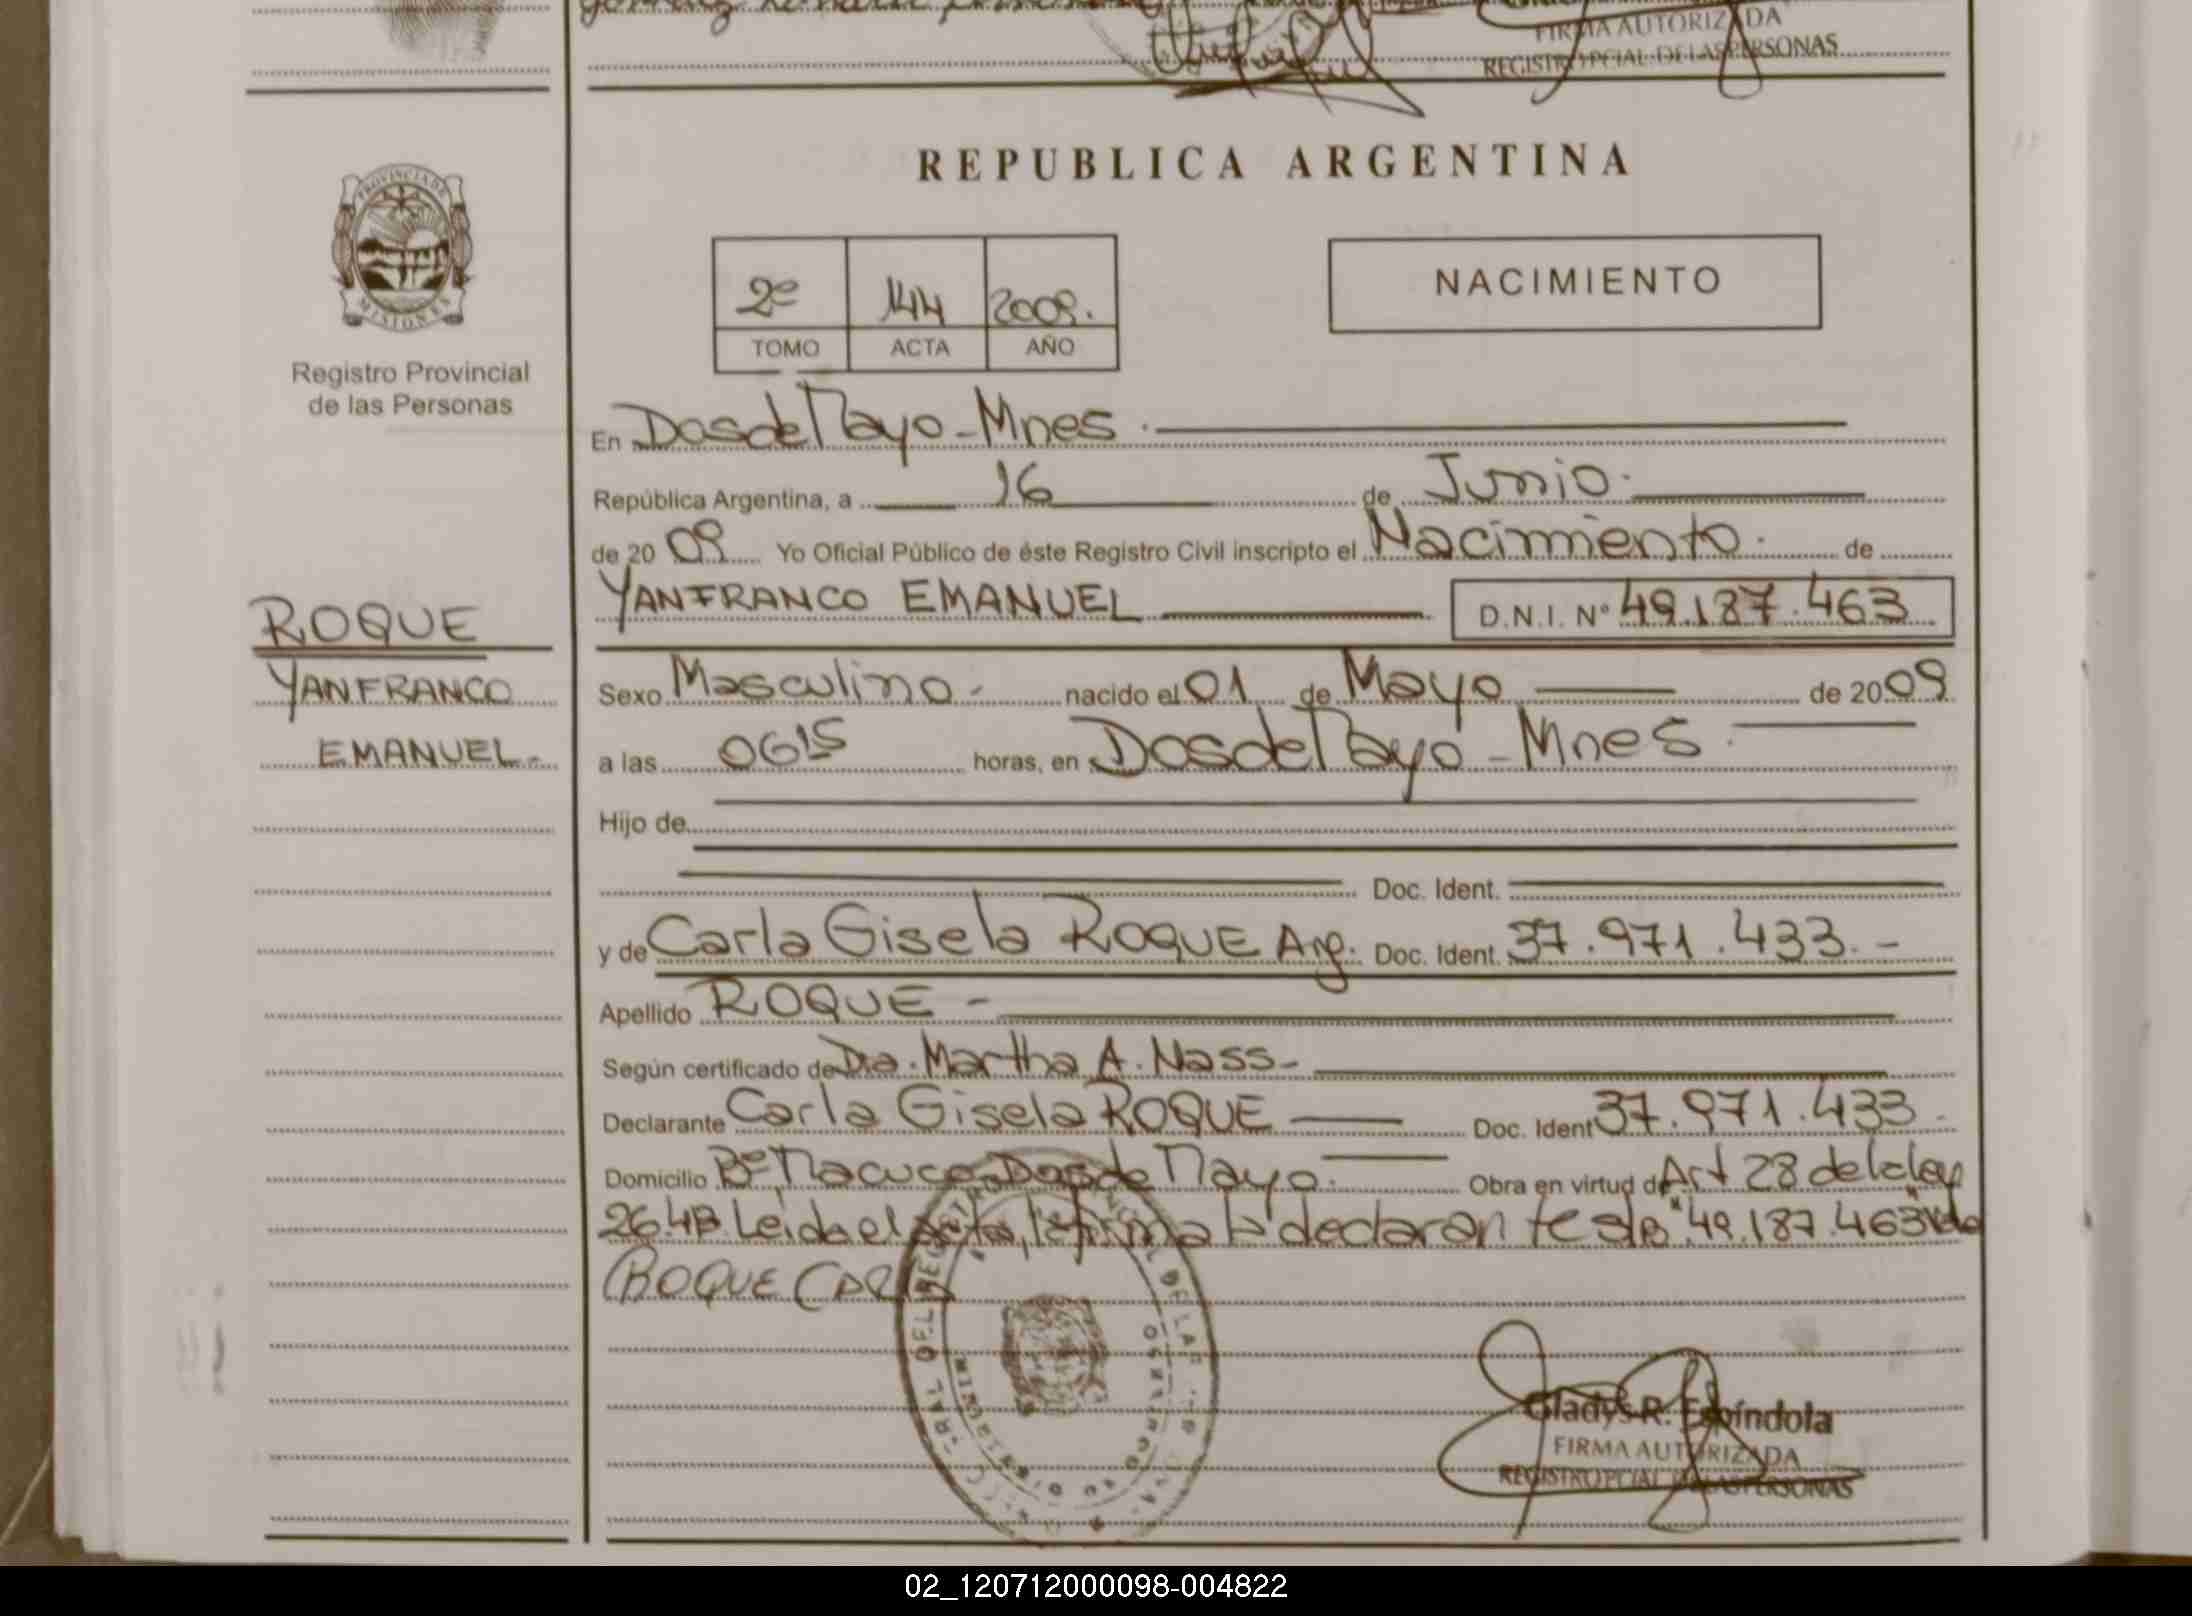 FIRMA AUTORIZADA
REGISTRO PCIAL DE LAS PERSONAS
REPUBLICA ARGENTINA
PROVINCIA DE
MISIONES
Registro Provincial
de las Personas
2º 144 2009.
TOMO ACTA AÑO
NACIMIENTO
En Dos de Mayo - Mnes.
República Argentina, a 16 de Junio.
de 20 09 Yo Oficial Público de éste Registro Civil inscripto el Nacimiento. de
YANFRANCO EMANUEL D.N.I. Nº 49.187.463
ROQUE
YANFRANCO
EMANUEL.-
Sexo Masculino - nacido el 01 de Mayo de 20 09
a las 0615 horas, en Dos de Mayo - Mnes.
Hijo de
Doc. Ident.
y de Carla Gisela ROQUE Arg. Doc. Ident. 37.971.433.-
Apellido ROQUE -
Según certificado de Dra. Martha A. Nass-
Declarante Carla Gisela ROQUE Doc. Ident 37.971.433.
Domicilio Bº Macuco - Dos de Mayo. Obra en virtud de Art 28 de la ley
26.413. Leida el acta, la firma la declaran te s/b "49.187.463" Vale
ROQUE CARLA
Gladys R. Espíndola
FIRMA AUTORIZADA
REGISTRO PCIAL DE LAS PERSONAS
02_120712000098-004822